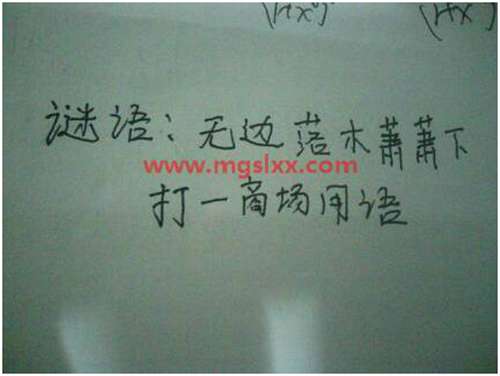 (1+x)
(1+x)
谜语：无边落木萧萧下
www.mgslxx.com
打一商场用语